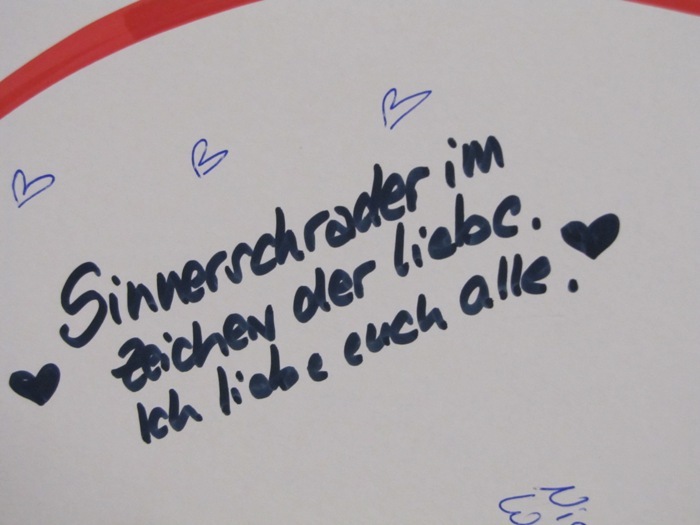 Sinnerschrader im
zeichen der liebe.
Ich liebe euch alle.